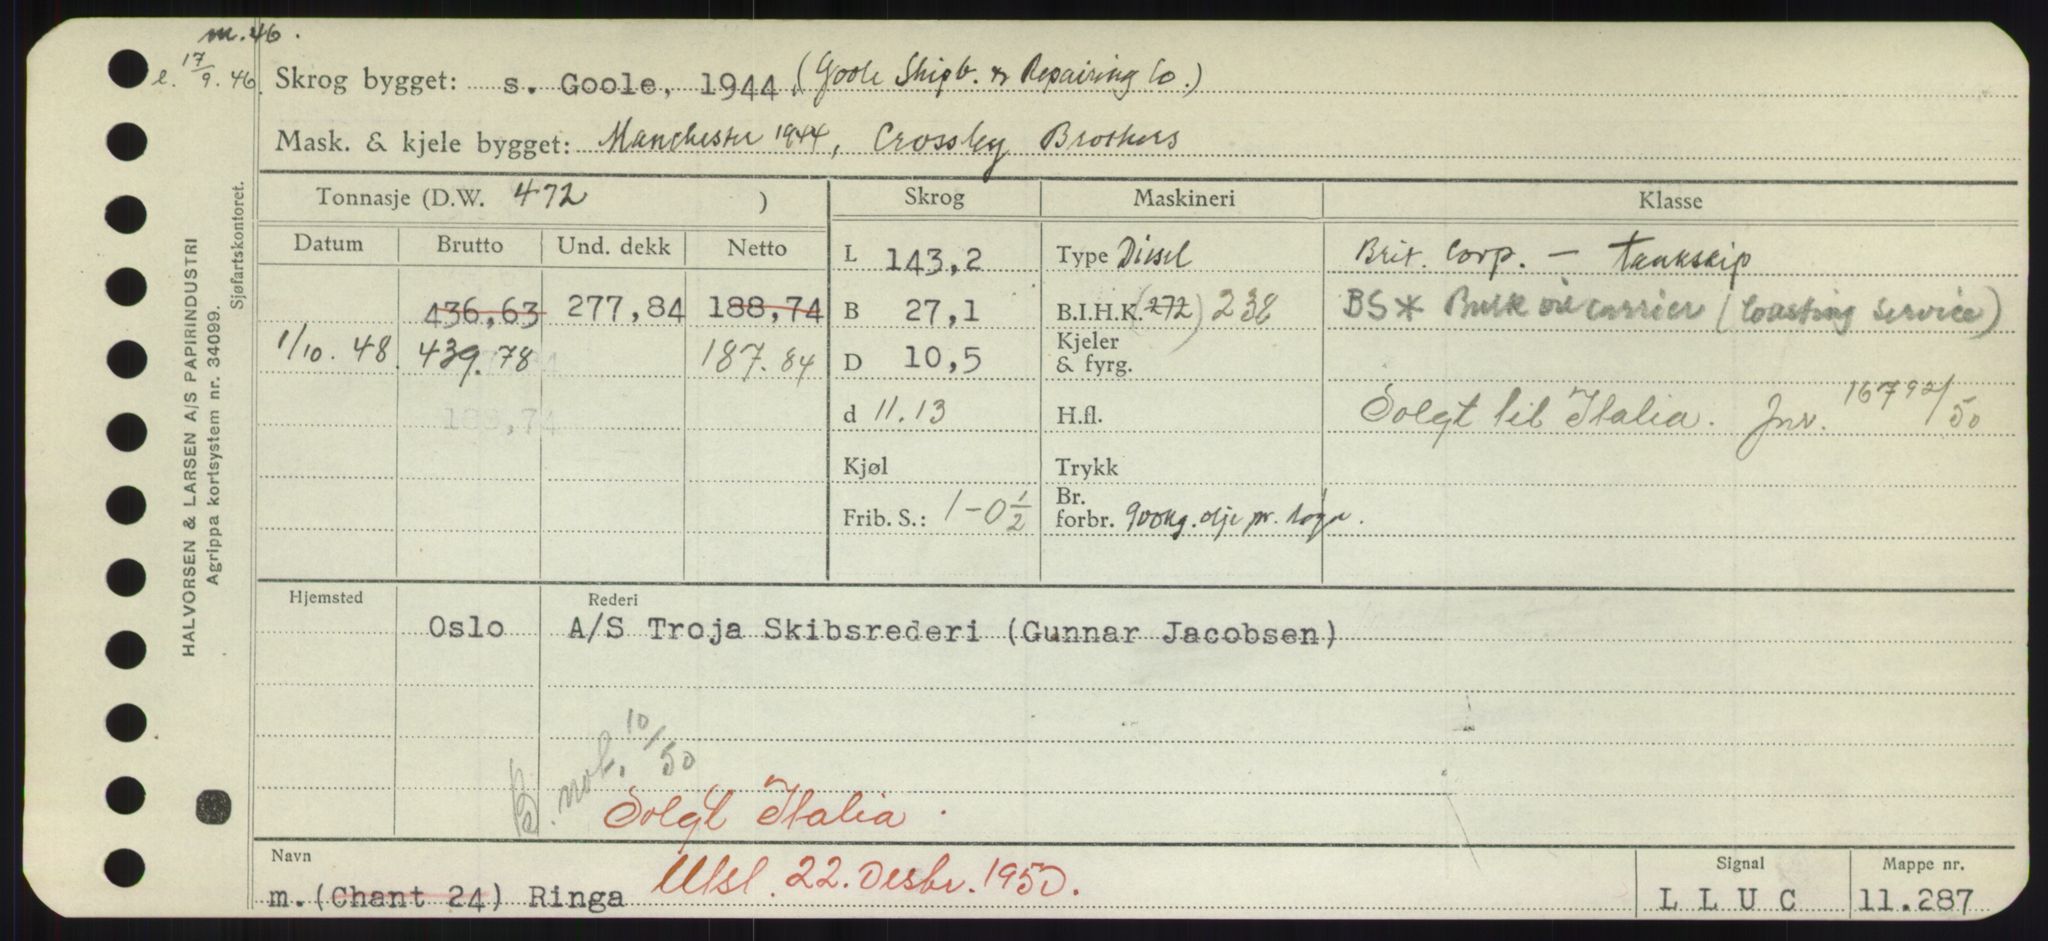 m. 46.
l. 17/9. 46.
Skrog bygget: s. Goole, 1944. (Goole Shipb. & Repairing Co.)
Mask. & kjele bygget: Manchester 1944, Crossley Brothers
Tonnasje (D.W. 472 ) Skrog Maskineri Klasse
Datum Brutto Und. dekk Netto
L 143,2 Type Diesel Brit. Corp. — tankskip
436,63 277,84 188,74 B 27,1 B.I.H.K. (272) 238 BS* Bulk oil carrier (Coasting Service)
1/10. 48. 439.78 187.84 D 10,5 Kjeler & fyrg.
188,74 d 11.13 H.fl. Solgt til Italia. Jnr. 16792/50
Kjøl Trykk
Frib. S.: 1-0½ Br. forbr. 900kg. olje pr. døgn.
Hjemsted Rederi
Oslo A/S Troja Skibsrederi (Gunnar Jacobsen)
B. not. 10/50
Solgt Italia.
Navn Signal Mappe nr.
m. (Chant 24) Ringa Utsl. 22. Desbr. 1950. L L U C 11.287
HALVORSEN & LARSEN A/S PAPIRINDUSTRI
Agrippa kortsystem nr. 34099.
Sjøfartskontoret.